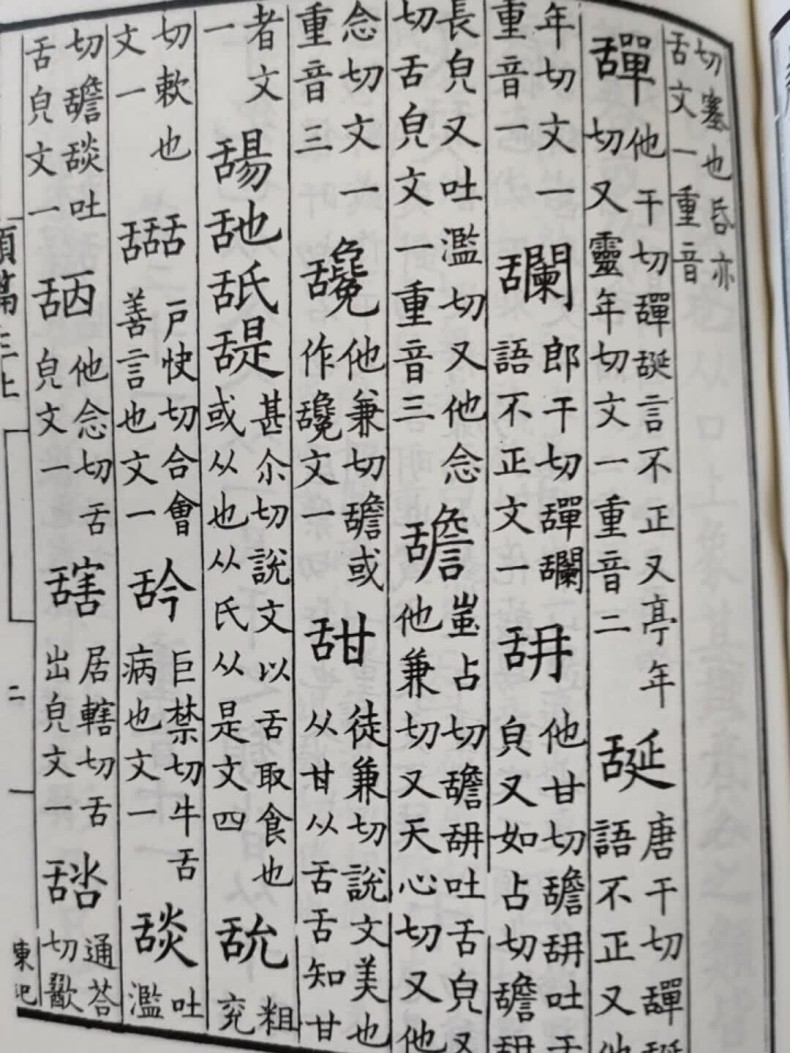 切塞也昏亦
舌文一重音
他干切言不正又亭年
切又靈年切文一重音二
唐干切
語不正又他
年切文一
重音一
郎干切
語不正文一
舑
他甘切舚舑吐舌
皃又如占切舚舑
長皃又吐濫切又他念
切舌皃文一重音三
舚
蚩占切舚舑吐舌皃又
他兼切又天心切又他
念切文一
重音三
他兼切舚或
作文一
甜
徒兼切說文美也
从甘从舌舌知甘
者文
一
舓舐
甚尒切說文以舌取食也
或从也从氏从是文四
粗
兖
切欶也
文一
戸快切合會
善言也文一
巨禁切牛舌
病也文一
舕
吐
濫
切舚舕吐
舌皃文一
他念切舌
皃文一
居轄切舌
出皃文一
通荅
切歠
類篇三上
二